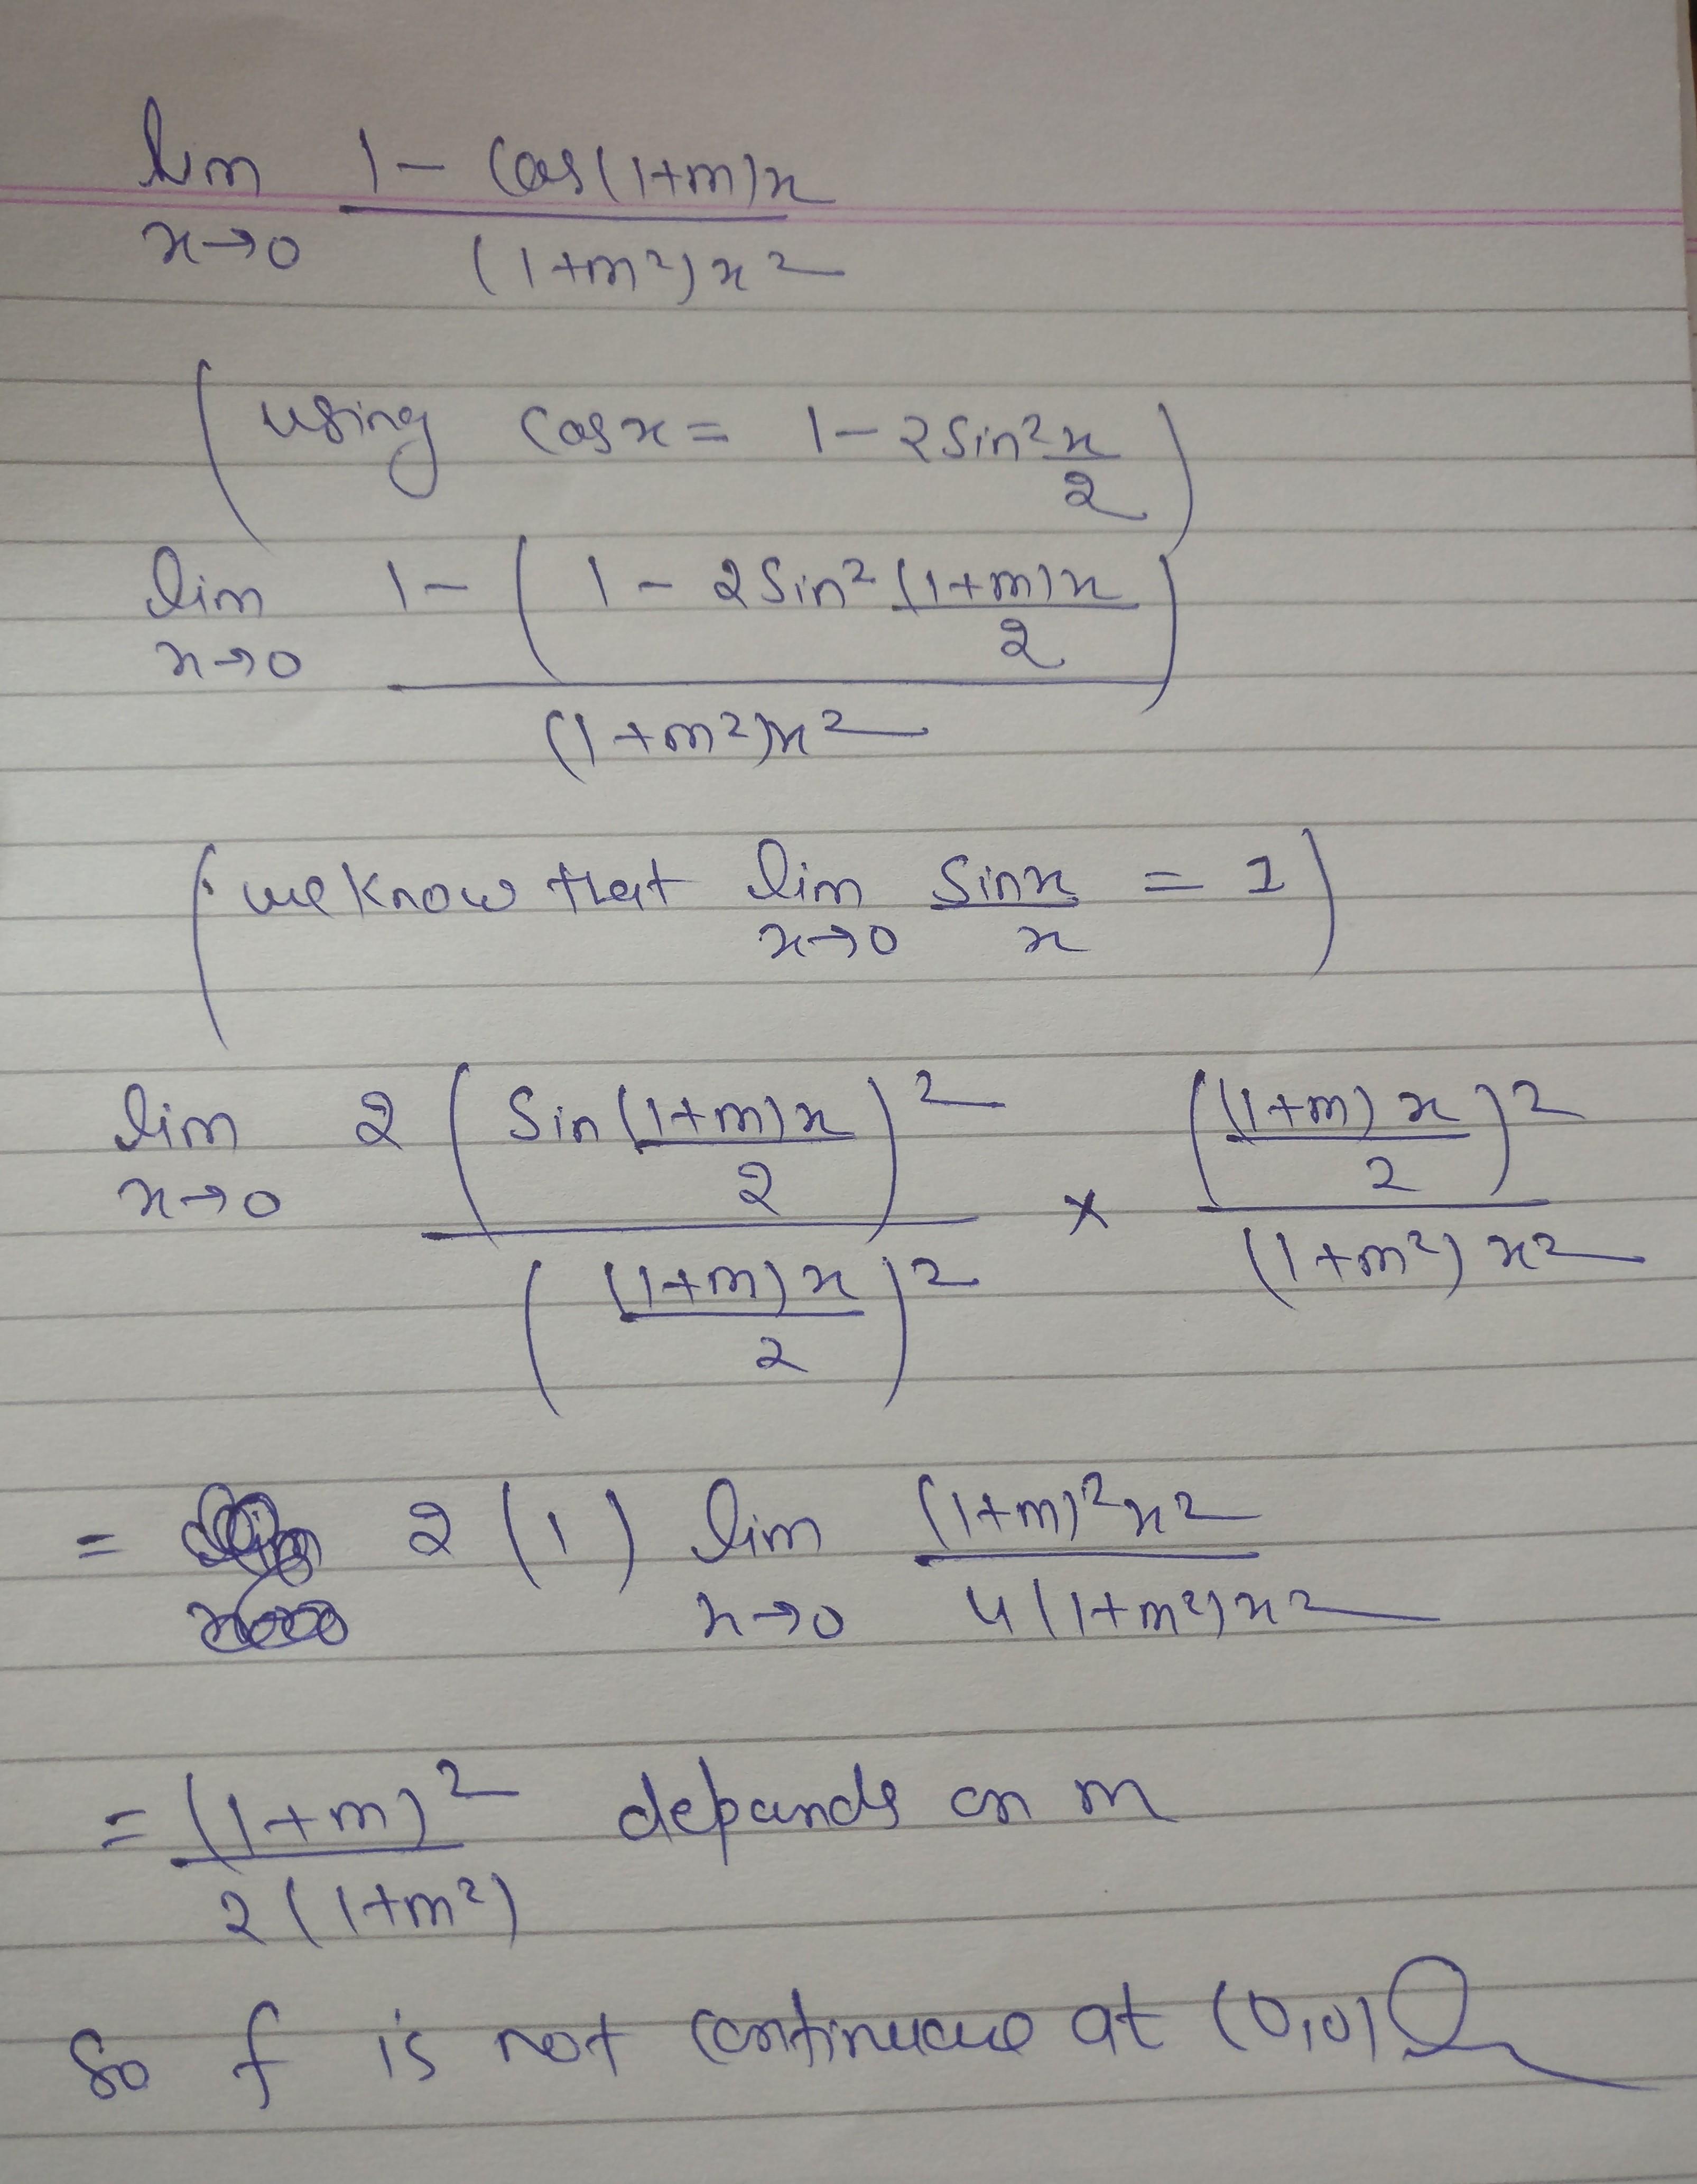 lim 1 - cos(1+m)x
x→0 (1+m²)x²
(using cosx = 1 - 2sin² x/2)
lim 1 - (1 - 2sin² (1+m)x/2)
x→0 (1+m²)x²
(we know that lim x→0 sinx/x = 1)
lim x→0 2 (sin (1+m)x/2)² / ((1+m)x/2)² × ((1+m)x/2)² / (1+m²)x²
= 2(1) lim x→0 (1+m)²x² / 4(1+m²)x²
= (1+m)² / 2(1+m²) depands on m
So f is not continuous at (0,0)